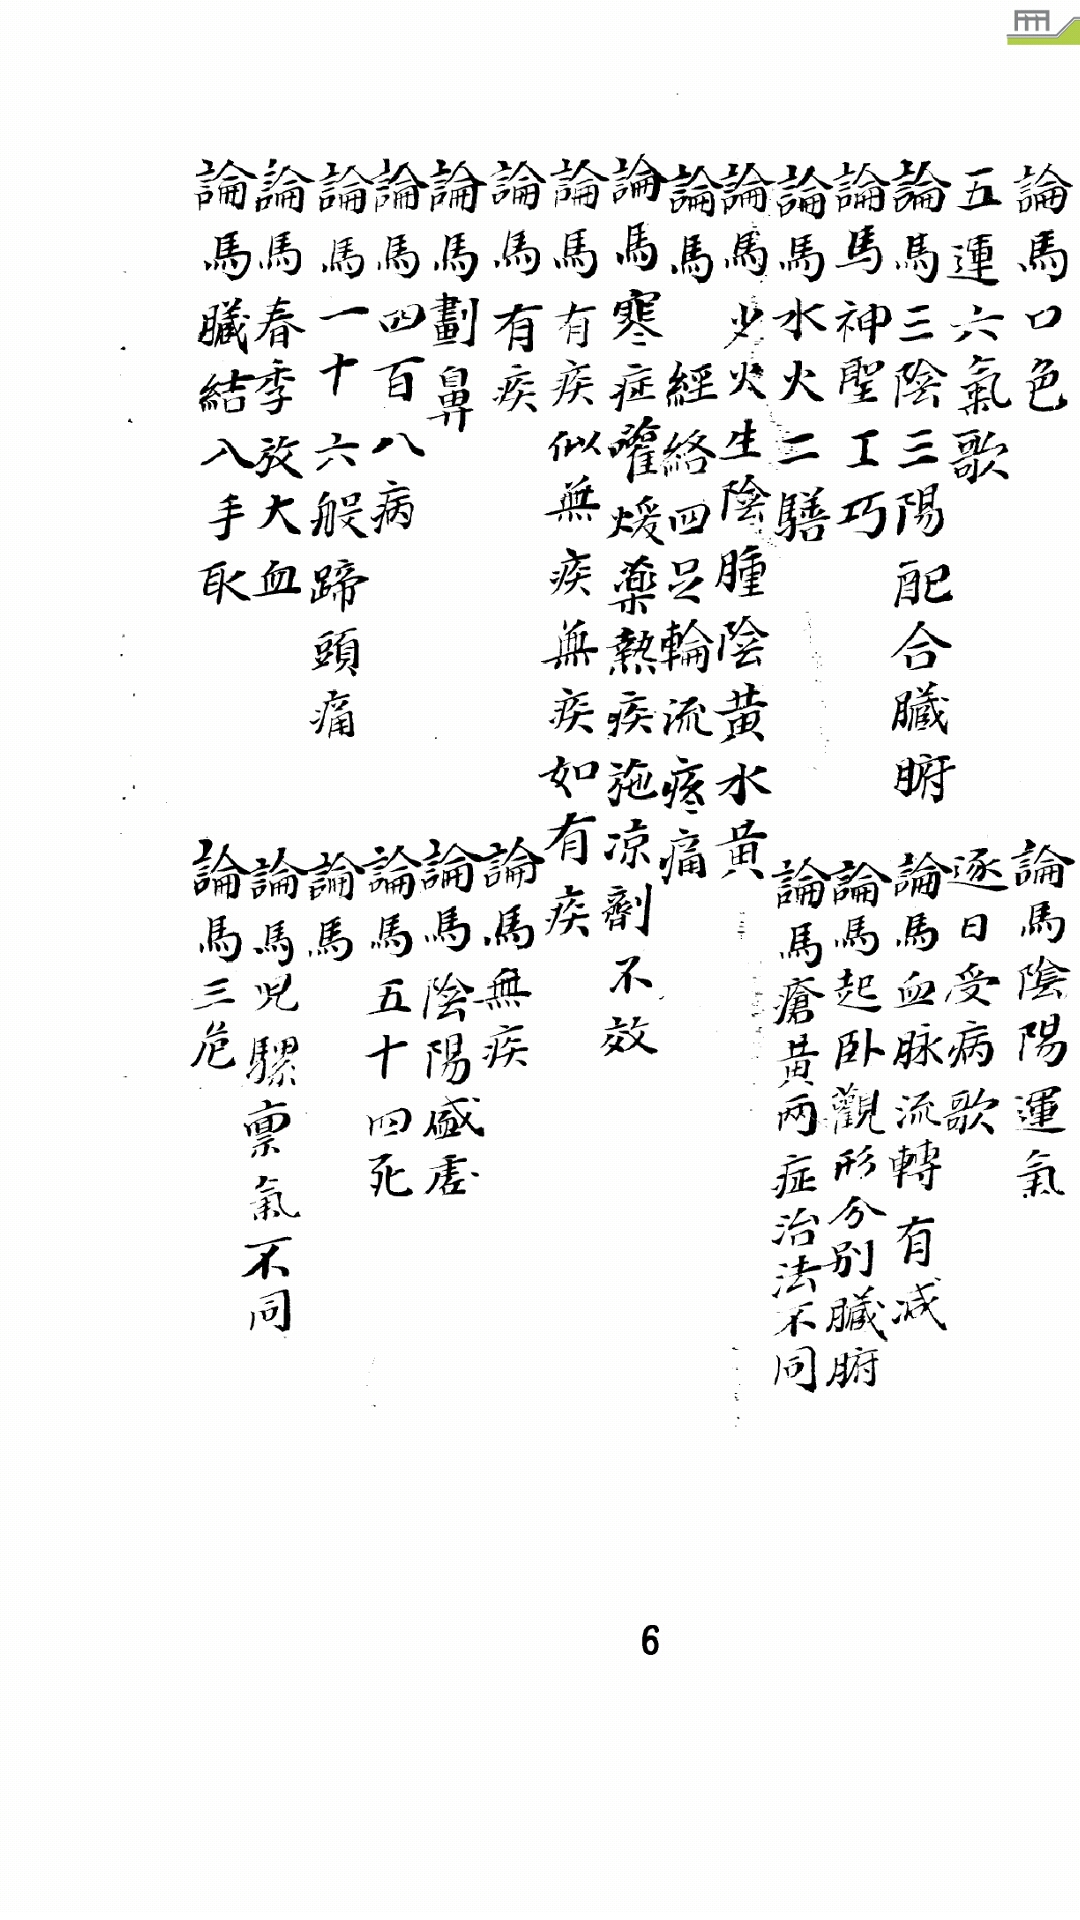 論馬口色
論馬陰陽運氣
五運六氣歌
逐日受病歌
論馬三陰三陽配合臟腑
論馬血脉流轉有減
論馬神聖工巧
論馬起卧觀形分別臟腑
論馬水火二騸
論馬瘡黃兩症治法不同
論馬少火生陰腫陰黃水黃
論馬 經絡四足輪流疼痛
論馬寒症灌煖藥熱疾施凉劑不效
論馬有疾似無疾無疾如有疾
論馬有疾
論馬無疾
論馬劃鼻
論馬陰陽盛虛
論馬四百八病
論馬五十四死
論馬一十六般蹄頭痛
論馬
論馬春季放大血
論馬児騾禀氣不同
論馬臟結入手取
論馬三危
6